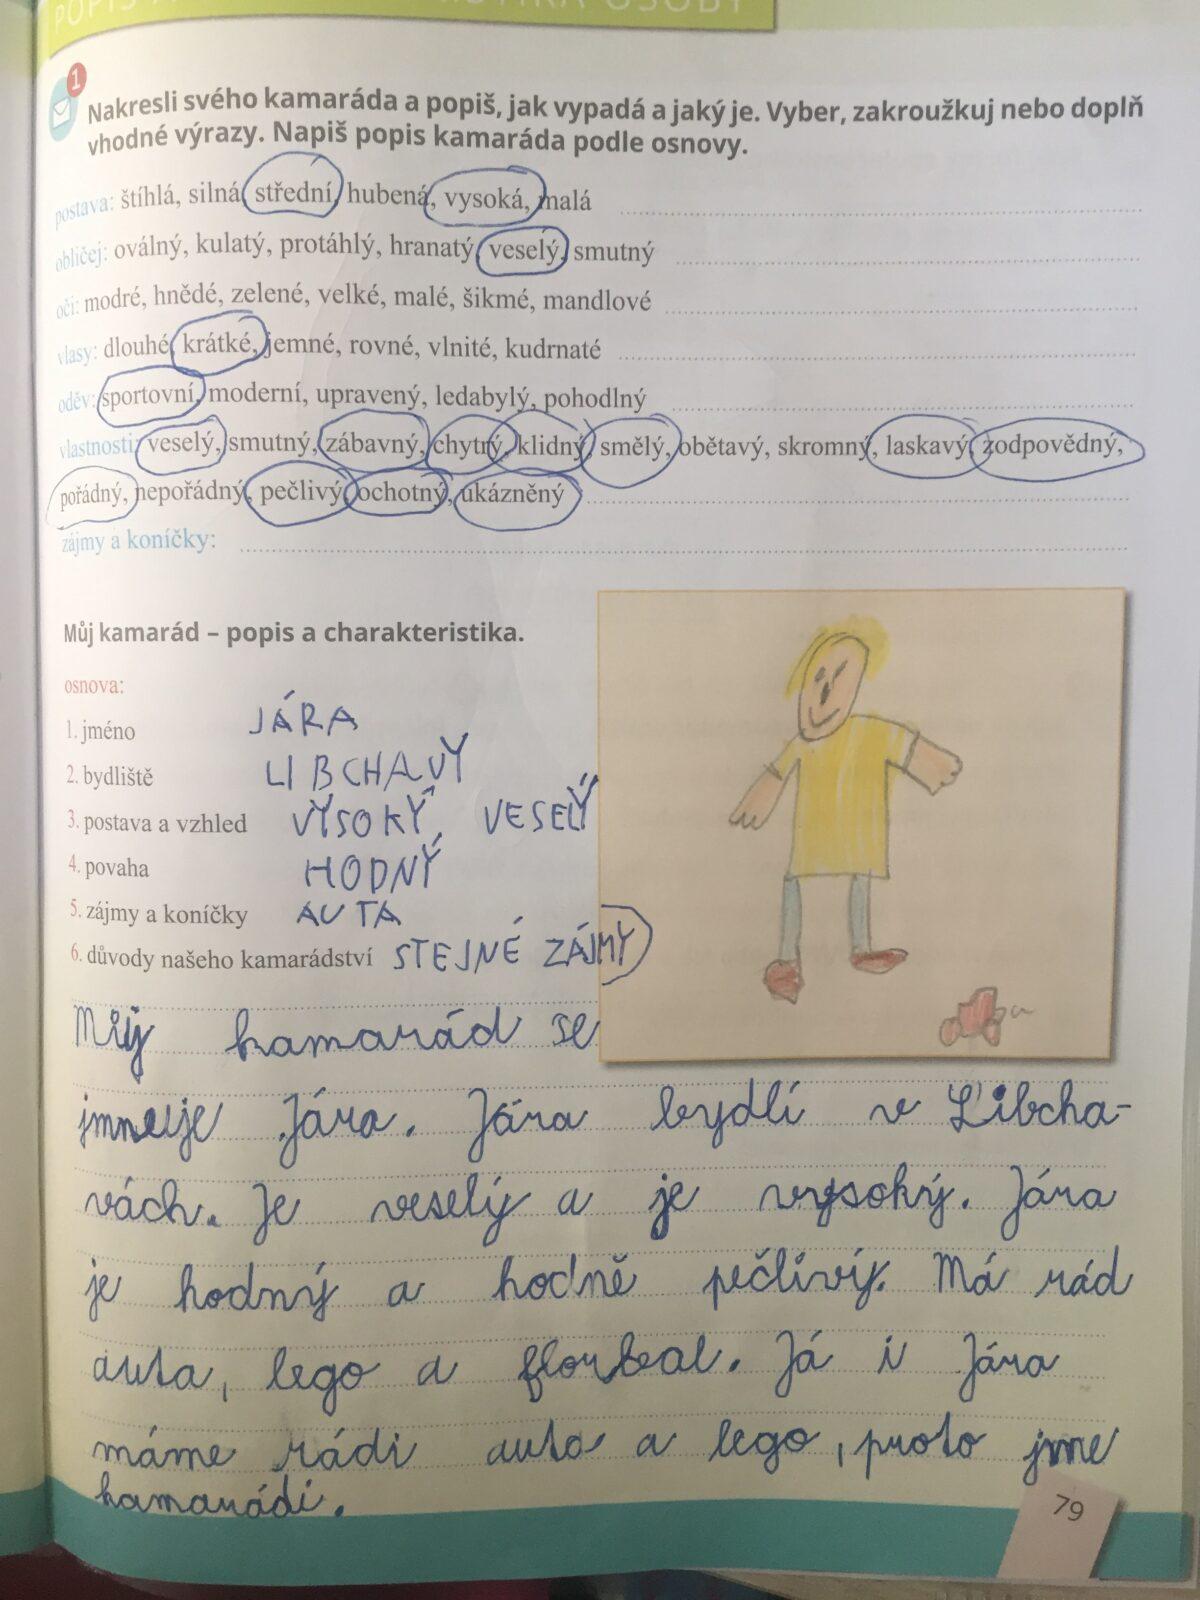 1
Nakresli svého kamaráda a popiš, jak vypadá a jaký je. Vyber, zakroužkuj nebo doplň
vhodné výrazy. Napiš popis kamaráda podle osnovy.
postava: štíhlá, silná, střední, hubená, vysoká, malá
obličej: oválný, kulatý, protáhlý, hranatý, veselý, smutný
oči: modré, hnědé, zelené, velké, malé, šikmé, mandlové
vlasy: dlouhé, krátké, jemné, rovné, vlnité, kudrnaté
oděv: sportovní, moderní, upravený, ledabylý, pohodlný
vlastnosti: veselý, smutný, zábavný, chytrý, klidný, smělý, obětavý, skromný, laskavý, zodpovědný,
pořádný, nepořádný, pečlivý, ochotný, ukázněný
zájmy a koníčky:
Můj kamarád – popis a charakteristika.
osnova:
1. jméno JÁRA
2. bydliště LIBCHAVY
3. postava a vzhled VYSOKÝ, VESELÝ
4. povaha HODNÝ
5. zájmy a koníčky AUTA
6. důvody našeho kamarádství STEJNÉ ZÁJMY
Můj kamarád se
jmneje Jára. Jára bydlí v Libcha-
vách. Je veselý a je vysoký. Jára
je hodný a hodně pečlivý. Má rád
auta, lego a . Já i Jára
máme rádi auta a lego, proto jme
kamarádi.
79